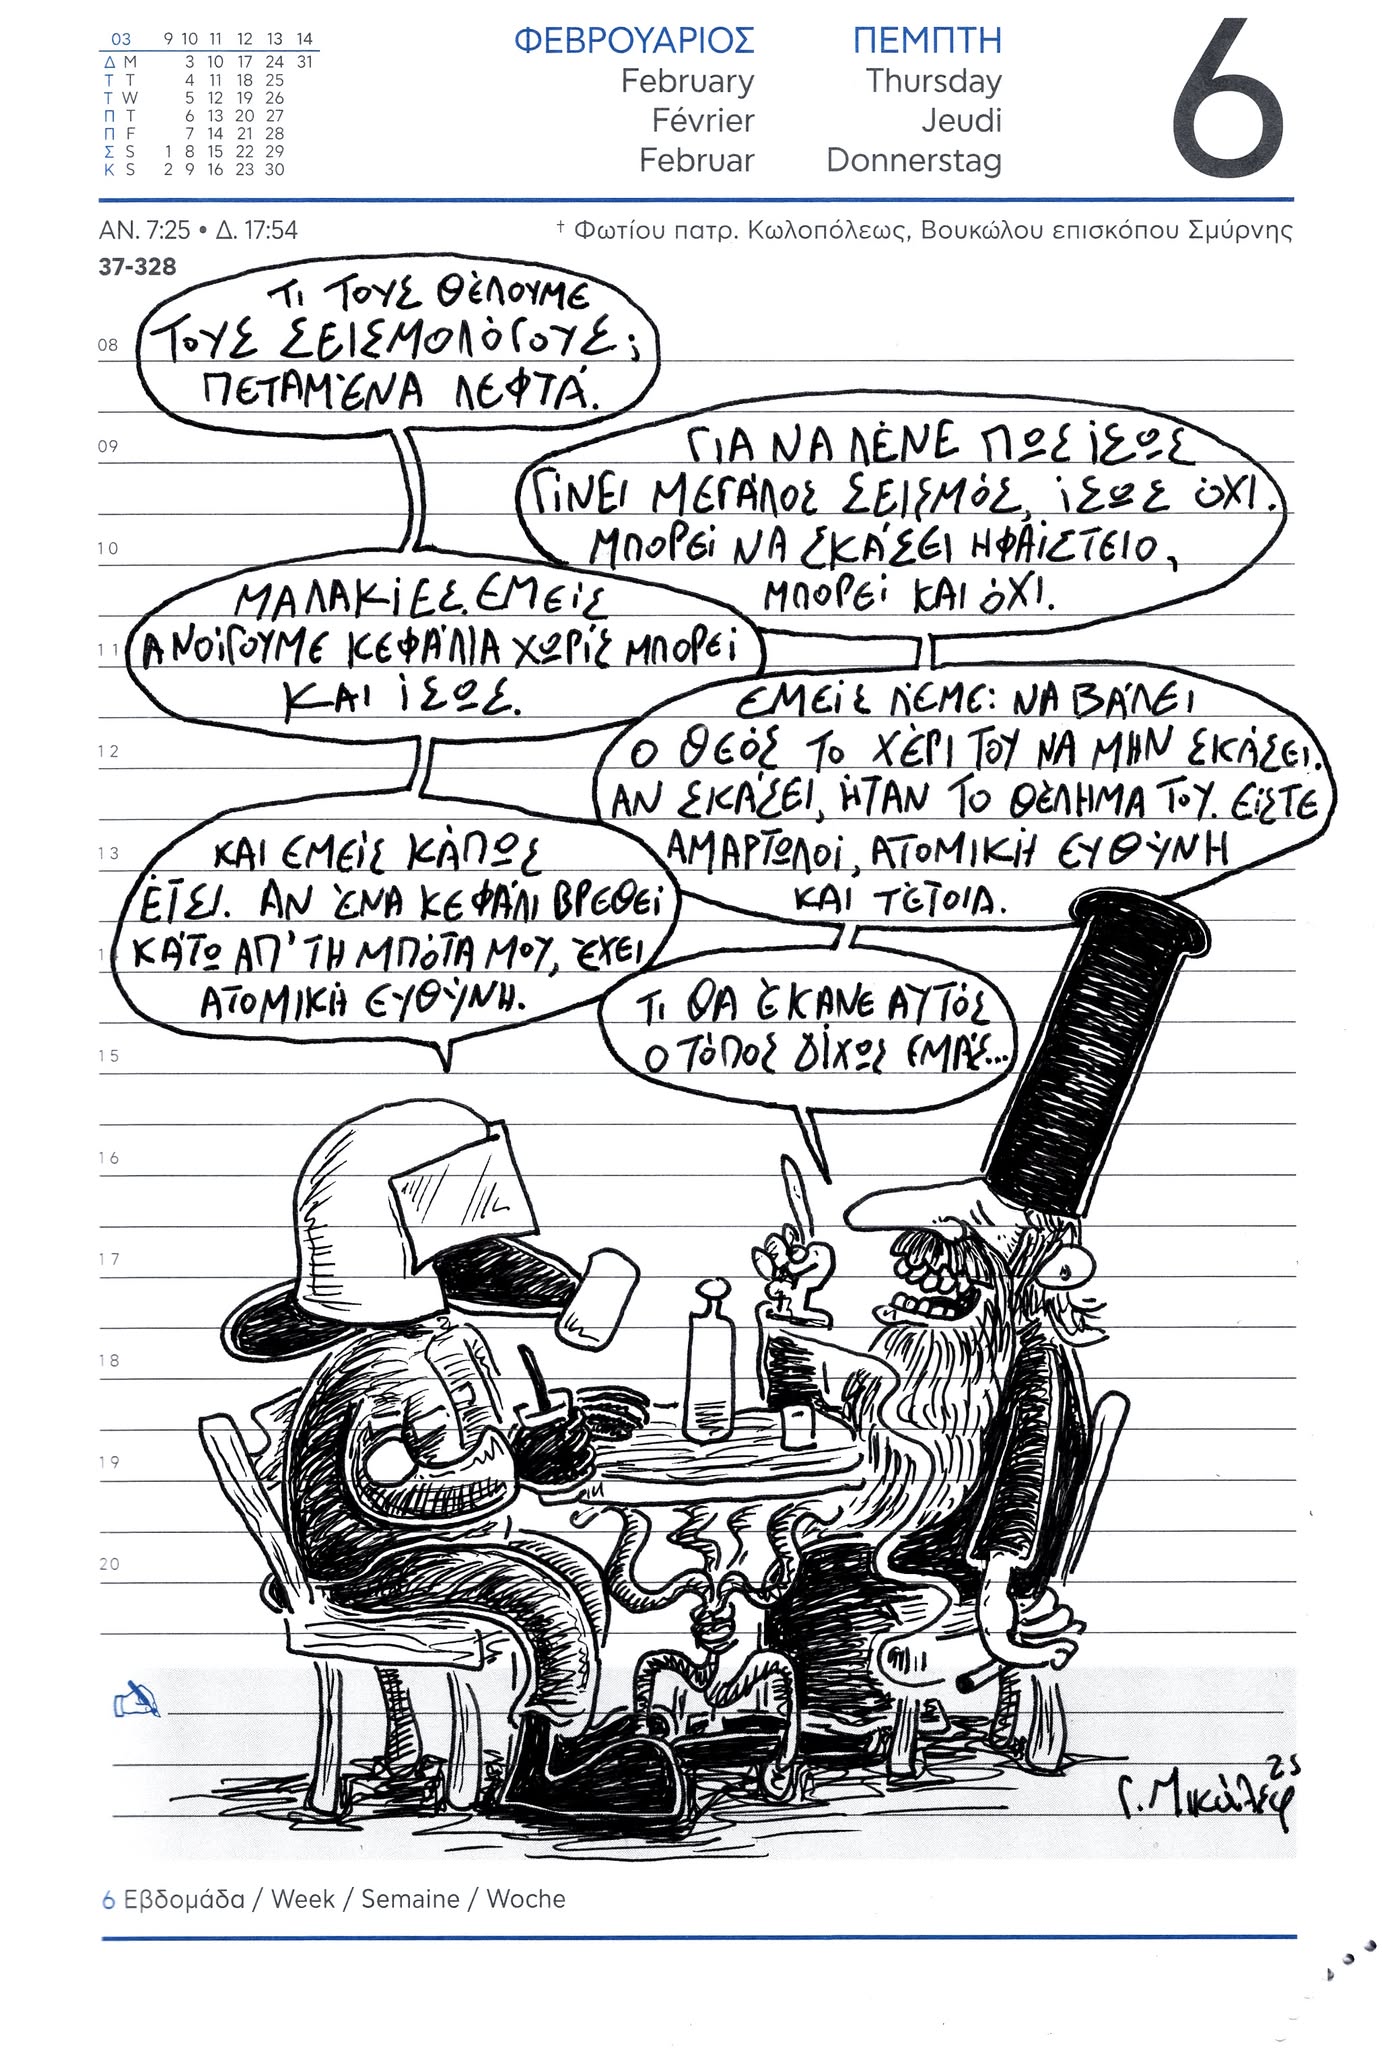 03 9 10 11 12 13 14
Δ M 3 10 17 24 31
Τ T 4 11 18 25
Τ W 5 12 19 26
Π T 6 13 20 27
Π F 7 14 21 28
Σ S 1 8 15 22 29
Κ S 2 9 16 23 30
ΦΕΒΡΟΥΑΡΙΟΣ
February
Février
Februar
ΠΕΜΠΤΗ
Thursday
Jeudi
Donnerstag
6
ΑΝ. 7:25 • Δ. 17:54
† Φωτίου πατρ. Κωλοπόλεως, Βουκώλου επισκόπου Σμύρνης
37-328
ΤΙ ΤΟΥΣ ΘΈΛΟΥΜΕ
ΤΟΥΣ ΣΕΙΣΜΟΛΌΓΟΥΣ;
ΠΕΤΑΜΈΝΑ ΛΕΦΤΆ.
ΓΙΑ ΝΑ ΛΈΝΕ ΠΩΣ ΊΣΩΣ
ΓΊΝΕΙ ΜΕΓΆΛΟΣ ΣΕΙΣΜΌΣ, ΊΣΩΣ ΌΧΙ.
ΜΠΟΡΕΊ ΝΑ ΣΚΆΣΕΙ ΗΦΑΊΣΤΕΙΟ,
ΜΠΟΡΕΊ ΚΑΙ ΌΧΙ.
ΜΑΛΑΚΊΕΣ. ΕΜΕΊΣ
ΑΝΟΊΓΟΥΜΕ ΚΕΦΆΛΙΑ ΧΩΡΊΣ ΜΠΟΡΕΊ
ΚΑΙ ΊΣΩΣ.
ΕΜΕΊΣ ΛΈΜΕ: ΝΑ ΒΆΛΕΙ
Ο ΘΕΌΣ ΤΟ ΧΈΡΙ ΤΟΥ ΝΑ ΜΗΝ ΣΚΆΣΕΙ.
ΑΝ ΣΚΆΣΕΙ, ΉΤΑΝ ΤΟ ΘΈΛΗΜΑ ΤΟΥ. ΕΊΣΤΕ
ΑΜΑΡΤΩΛΟΊ, ΑΤΟΜΙΚΉ ΕΥΘΎΝΗ
ΚΑΙ ΤΈΤΟΙΑ.
ΚΑΙ ΕΜΕΊΣ ΚΆΠΩΣ
ΈΤΣΙ. ΑΝ ΈΝΑ ΚΕΦΆΛΙ ΒΡΕΘΕΊ
ΚΆΤΩ ΑΠ' ΤΗ ΜΠΌΤΑ ΜΟΥ, ΈΧΕΙ
ΑΤΟΜΙΚΉ ΕΥΘΎΝΗ.
ΤΙ ΘΑ ΈΚΑΝΕ ΑΥΤΌΣ
Ο ΤΌΠΟΣ ΔΊΧΩΣ ΕΜΆΣ...
08
09
10
11
12
13
1
15
16
17
18
19
20
25
Γ. Μικάλεφ
6 Εβδομάδα / Week / Semaine / Woche